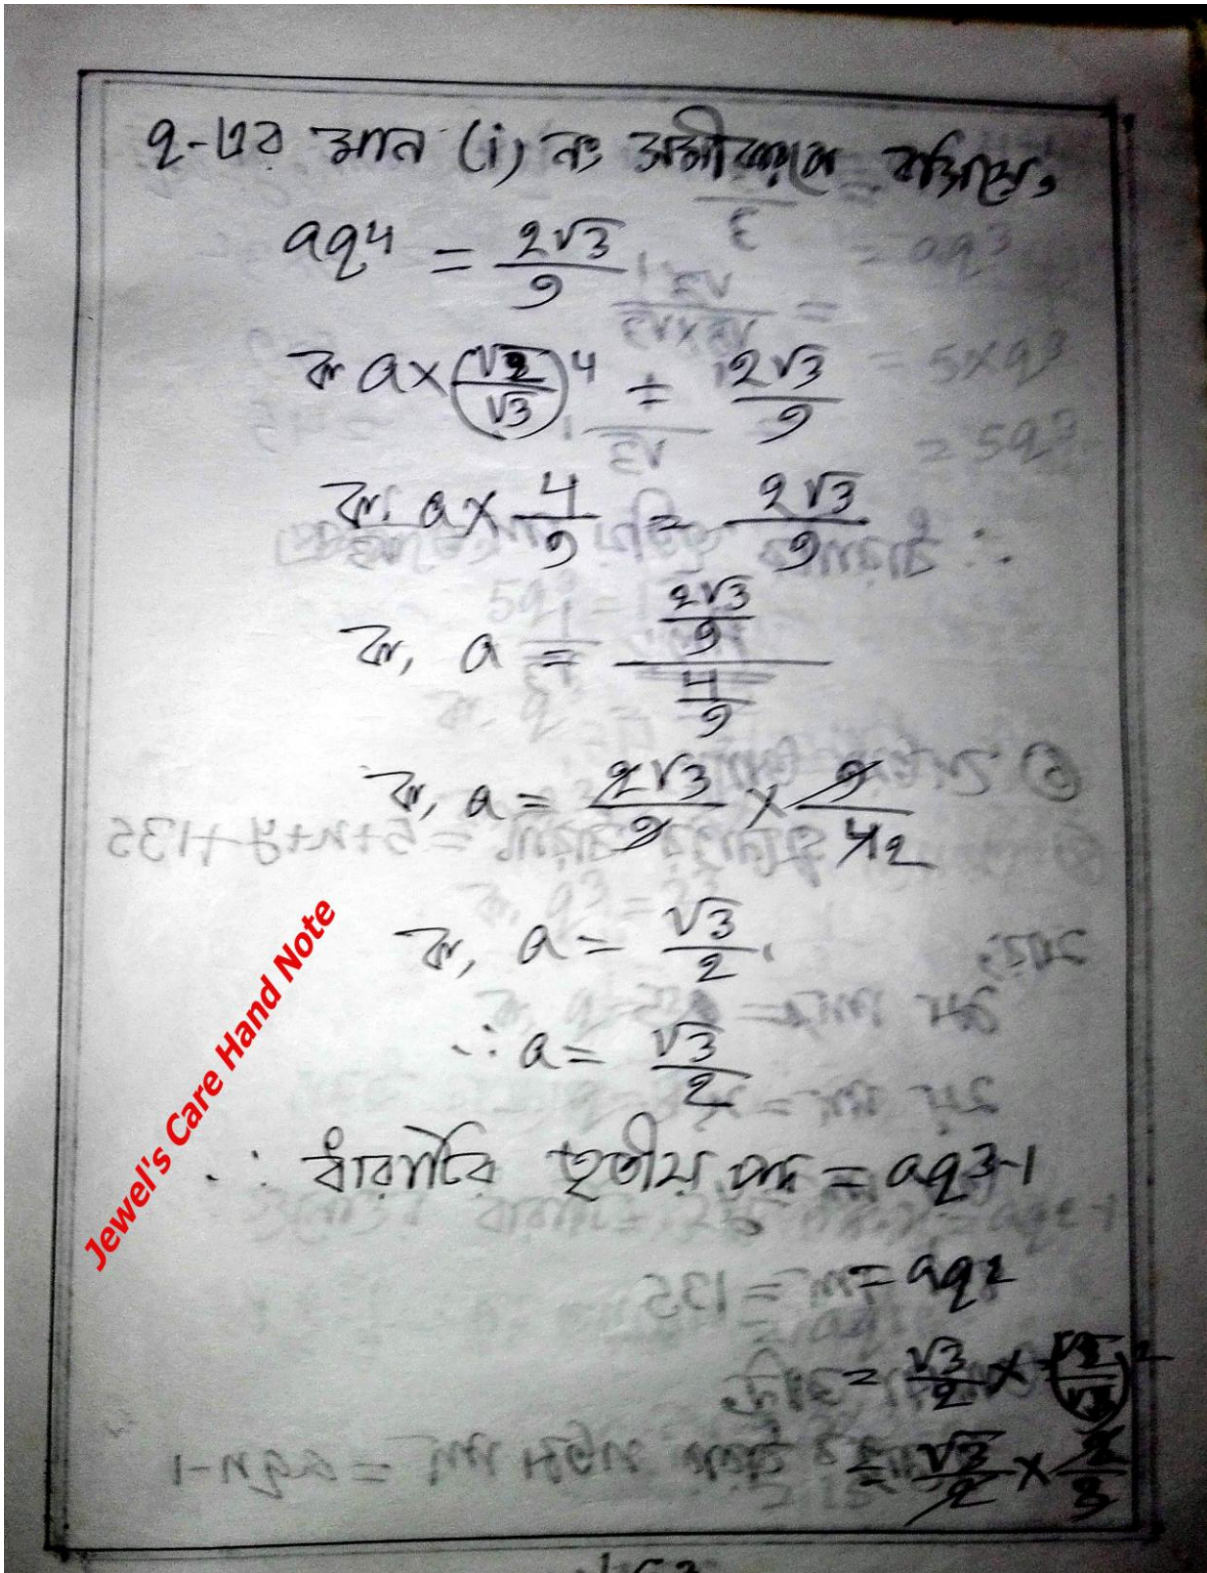 q-এর মান (i) নং সমীকরণে বসিয়ে,
aq⁴ = 2√3/9
বা a × (√2/√3)⁴ = 2√3/9
বা, a × 4/9 = 2√3/9
বা, a = (2√3/9)/(4/9)
বা, a = 2√3/9 × 9/4 2
বা, a = √3/2
∴ a = √3/2
∴ ধারাটির তৃতীয় পদ = aq³⁻¹
= aq²
= √3/2 × (√2/√3)²
= √3/2 × 2/3
Jewel's Care Hand Note